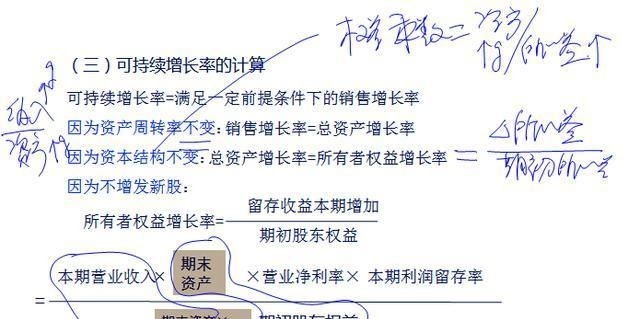 权益乘数=资产↑g/所有者权益↑
(三)可持续增长率的计算
收入↑g
资产↑g
可持续增长率=满足一定前提条件下的销售增长率
因为资产周转率不变:销售增长率=总资产增长率
因为资本结构不变:总资产增长率=所有者权益增长率
=
△所
期初所
因为不增发新股:
所有者权益增长率=
留存收益本期增加
期初股东权益
本期营业收入×
期末
资产
×营业净利率×本期利润留存率
=
期末资产×
期初股东权益